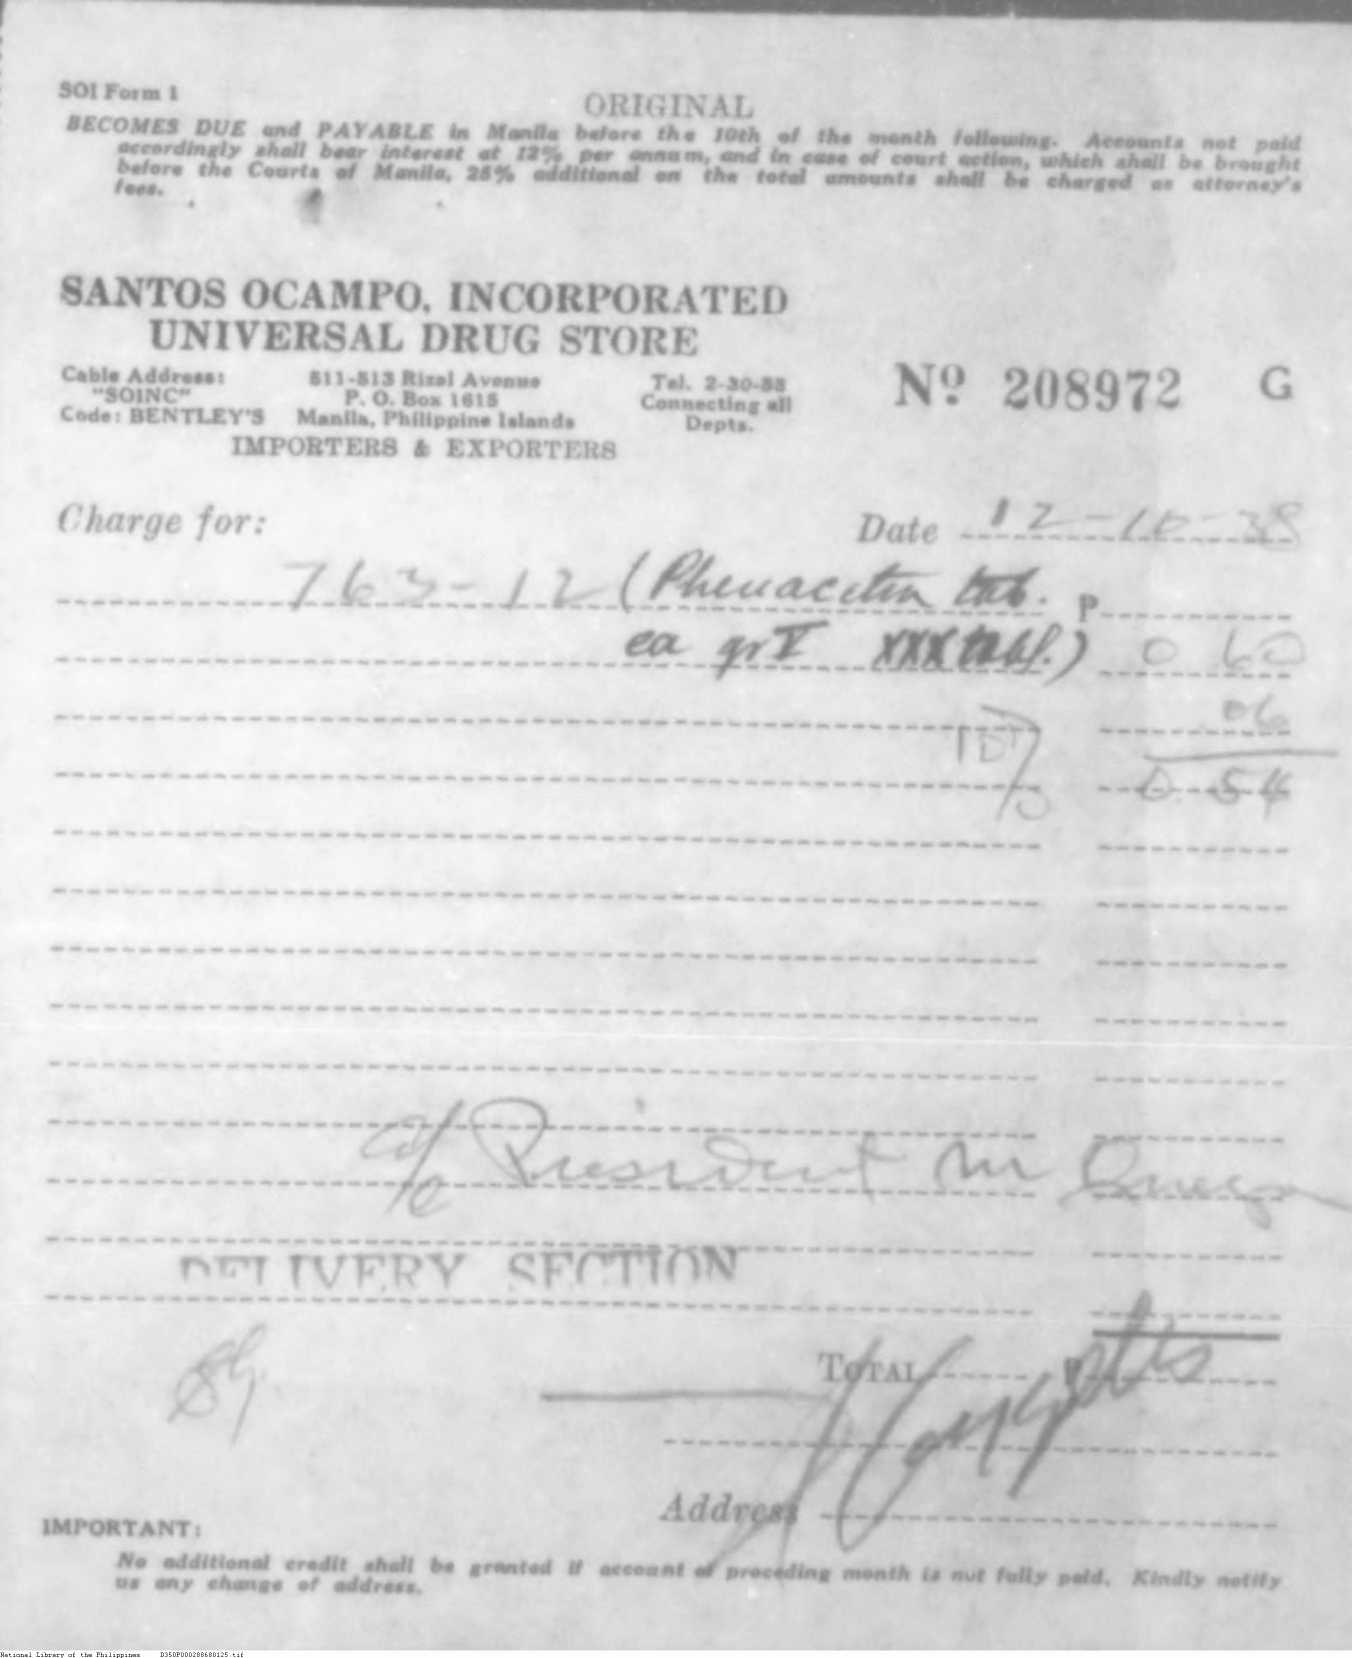 SOI Form 1
ORIGINAL
BECOMES DUE and PAYABLE in Manila before the 10th of the month following. Accounts not paid
accordingly shall bear interest at 12% per annum, and in case of court action, which shall be brought
before the Courts of Manila, 25% additional on the total amounts shall be charged as attorney's
fees.
SANTOS OCAMPO, INCORPORATED
UNIVERSAL DRUG STORE
Cable Address: 511-513 Rizal Avenue Tel. 2-30-88
"SOINC" P. O. Box 1615 Connecting all
Code: BENTLEY'S Manila, Philippine Islands Depts.
IMPORTERS & EXPORTERS
Nº 208972 G
Charge for:
Date 12-10-38
763-12 (Phenacetin tab. P
ea gr V XXX tabl.) 0 60
06
0 54
a/c President M Quezon
DELIVERY SECTION
TOTAL P
Address
IMPORTANT:
No additional credit shall be granted if account of preceding month is not fully paid. Kindly notify
us any change of address.
National Library of the Philippines D350P000288680125.tif